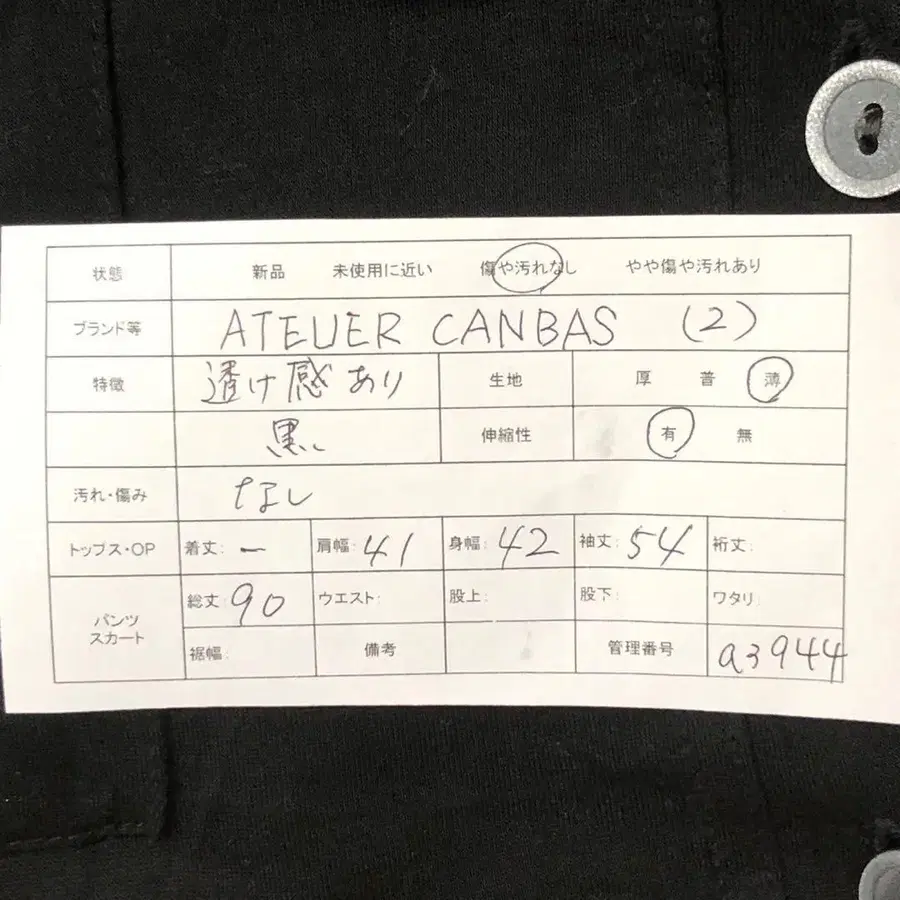 状態 新品 未使用に近い 傷や汚れなし やや傷や汚れあり
ブランド等 ATEUER CANBAS (2)
特徴 透け感あり 生地 厚 普 薄
黒 伸縮性 有 無
汚れ・傷み なし
トップス・OP 着丈: ー 肩幅: 41 身幅: 42 袖丈: 54 裄丈:
パンツ スカート 総丈: 90 ウエスト: 股上: 股下: ワタリ:
裾幅: 備考 管理番号 a3944